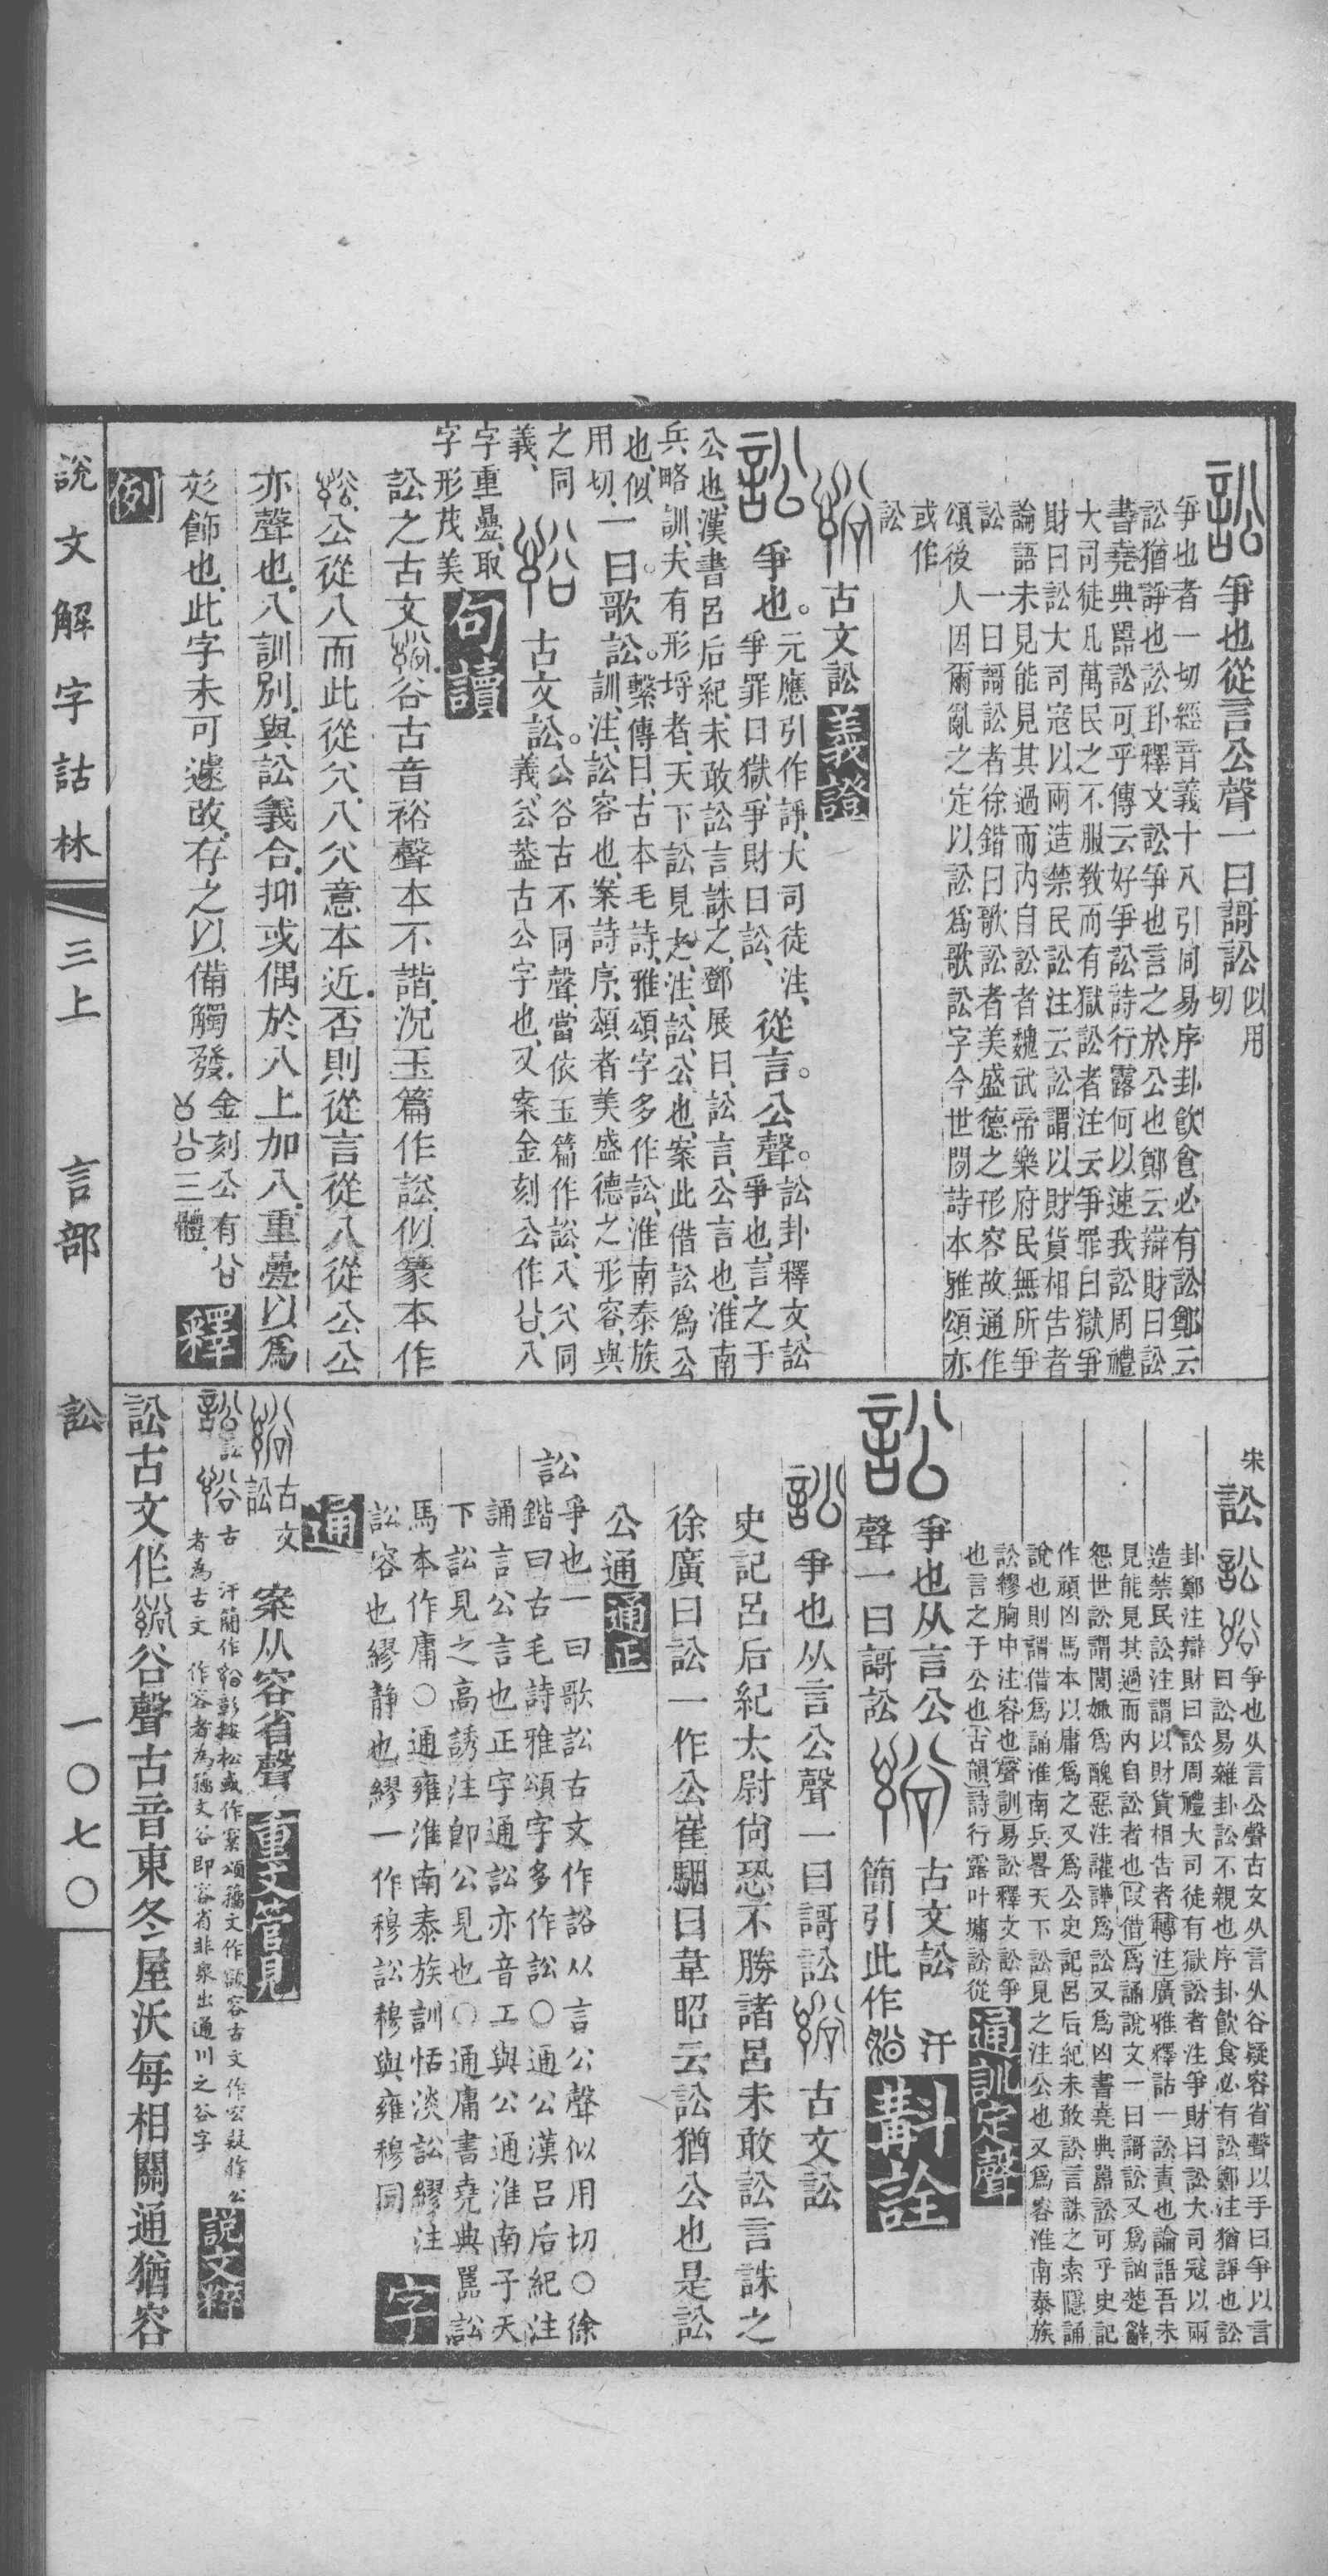 訟爭也從言公聲一曰謌訟似用切
爭也者一切經音義十八引同易序卦飲食必有訟鄭云
訟猶諍也訟卦釋文訟爭也言之於公也鄭云辯財曰訟
書堯典嚚訟可乎傳云好爭訟詩行露何以速我訟周禮
大司徒凡萬民之不服教而有獄訟者注云爭罪曰獄爭
財曰訟大司寇以兩造禁民訟注云訟謂以財貨相告者
論語未見能見其過而內自訟者魏武帝樂府民無所爭
訟 一曰謌訟者徐鍇曰歌訟者美盛德之形容故通作
頌後人因爾亂之定以訟爲歌訟字今世閒詩本雅頌亦
或作
訟
古文訟 義證
訟 爭也。元應引作諍、大司徒注、爭罪曰獄、爭財曰訟、從言。公聲。訟卦釋文、訟爭也、言之于
公也、漢書呂后紀、未敢訟言誅之、鄧展曰、訟言、公言也、淮南
兵略訓、夫有形埒者、天下訟見之、注、訟、公也、案此借訟爲公
也、似用切、一曰。歌訟。繫傳曰、古本毛詩、雅頌字多作訟、淮南泰族訓、注、訟容也、案詩序、頌者美盛德之形容、與
之同義、 古文訟。公谷古不同聲、當依玉篇作訟、八㕣同義、㕣葢古公字也、又案金刻公作、八
字重疊、取字形茂美 句讀
訟之古文谷古音裕聲本不諧、況玉篇作、似篆本作
、公從八而此從㕣、八㕣意本近、否則從言從八從公公
亦聲也、八訓別、與訟義合、抑或偶於八上加八、重疊以爲
彣飾也、此字未可遽改、存之以備觸發、金刻公有三體、釋
例
宋 訟 爭也从言公聲古文从言从谷疑容省聲以手曰爭以言
曰訟易雜卦訟不親也序卦飲食必有訟鄭注猶諍也訟
卦鄭注辯財曰訟周禮大司徒有獄訟者注爭財曰訟大司寇以兩
造禁民訟注謂以財貨相告者轉注廣雅釋詁一訟責也論語吾未
見能見其過而內自訟者也叚借爲誦說文一曰謌訟又爲訩楚辭
怨世訟謂閭娵爲醜惡注讙譁爲訟又爲凶書堯典嚚訟可乎史記
作頑凶馬本以庸爲之又爲公史記呂后紀未敢訟言誅之索隱誦
說也則謂借爲誦淮南兵畧天下訟見之注公也又爲容淮南泰族
訟繆胸中注容也聲訓易訟釋文訟爭
也言之于公也古韻詩行露叶墉訟從 通訓定聲
訟 爭也从言公聲一曰謌訟 古文訟 汗簡引此作 斠詮
訟 爭也从言公聲一曰謌訟 古文訟
史記呂后紀太尉尙恐不勝諸呂未敢訟言誅之
徐廣曰訟一作公崔駰曰韋昭云訟猶公也是訟
公通 通正
訟 爭也一曰歌訟古文作䛦从言公聲似用切○徐
鍇曰古毛詩雅頌字多作訟○通公漢呂后紀注
誦言公言也正字通訟亦音工與公通淮南子天
下訟見之高誘注卽公見也○通庸書堯典嚚訟
馬本作庸○通雍淮南泰族訓恬淡訟繆注
訟容也繆靜也繆一作穆訟穆與雍穆同 字
通
古文訟 案从容省聲 重文管見
訟 訟 古 汗簡作彰按松或作㮤頌籒文作額容古文作㝐疑作公
者為古文 作容者為籒文谷即容省非泉出通川之谷字 說文粹
訟古文作谷聲古音東冬屋沃每相關通猶容
說文解字詁林 三上 言部 訟 一〇七〇